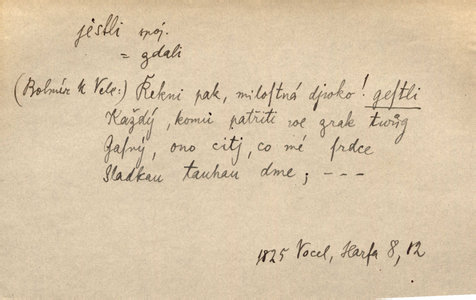 jestli spoj.
= zdali
(Bolmír k Vele:) Řekni pak, milostná djwko! gestli
Každý, komu patřiti we zrak twůg
Gasný, ono citj, co mé srdce
Sladkau tauhau dme; - - -
1825 Vocel, Harfa 8, 12